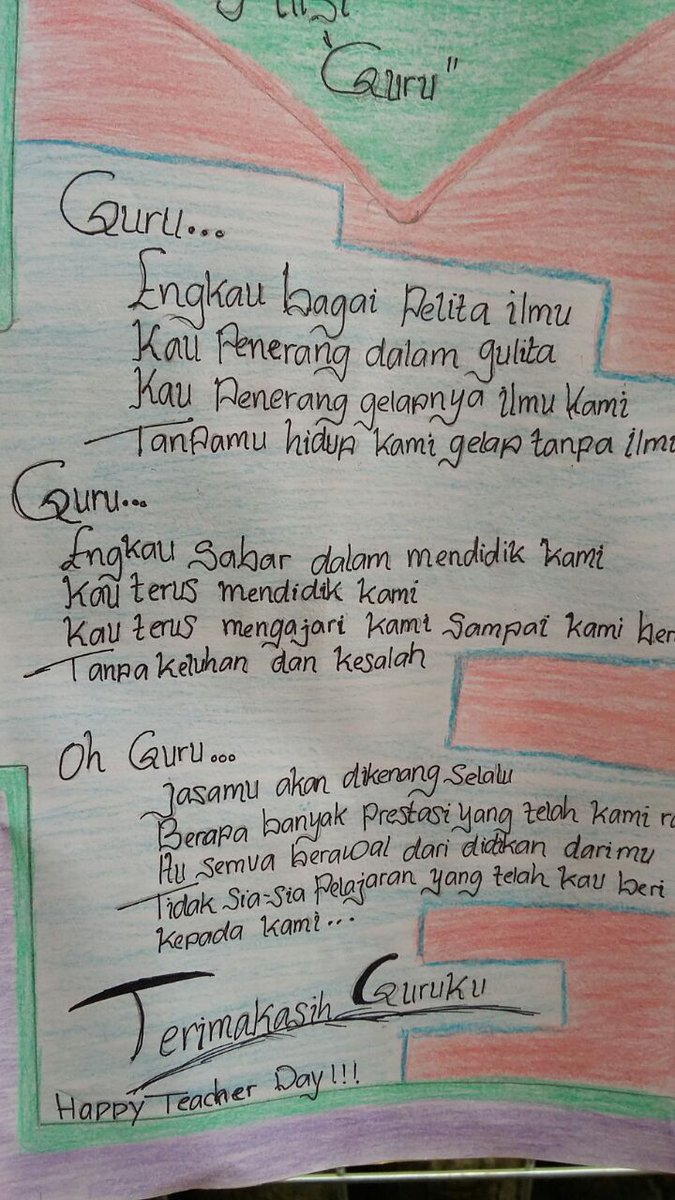 "Guru"
Guru...
Engkau bagai pelita ilmu
Kau Penerang dalam gulita
Kau Penerang gelapnya ilmu kami
Tanpamu hidup kami gelap tanpa ilmu
Guru...
Engkau sabar dalam mendidik kami
Kau terus mendidik kami
Kau terus mengajari kami sampai kami ber
Tanpa keluhan dan kesalah
Oh Guru...
Jasamu akan dikenang selalu
Berapa banyak prestasi yang telah kami r
Itu semua berawal dari didikan darimu
Tidak sia-sia pelajaran yang telah kau beri
kepada kami...
Terimakasih Guruku
Happy Teacher Day!!!